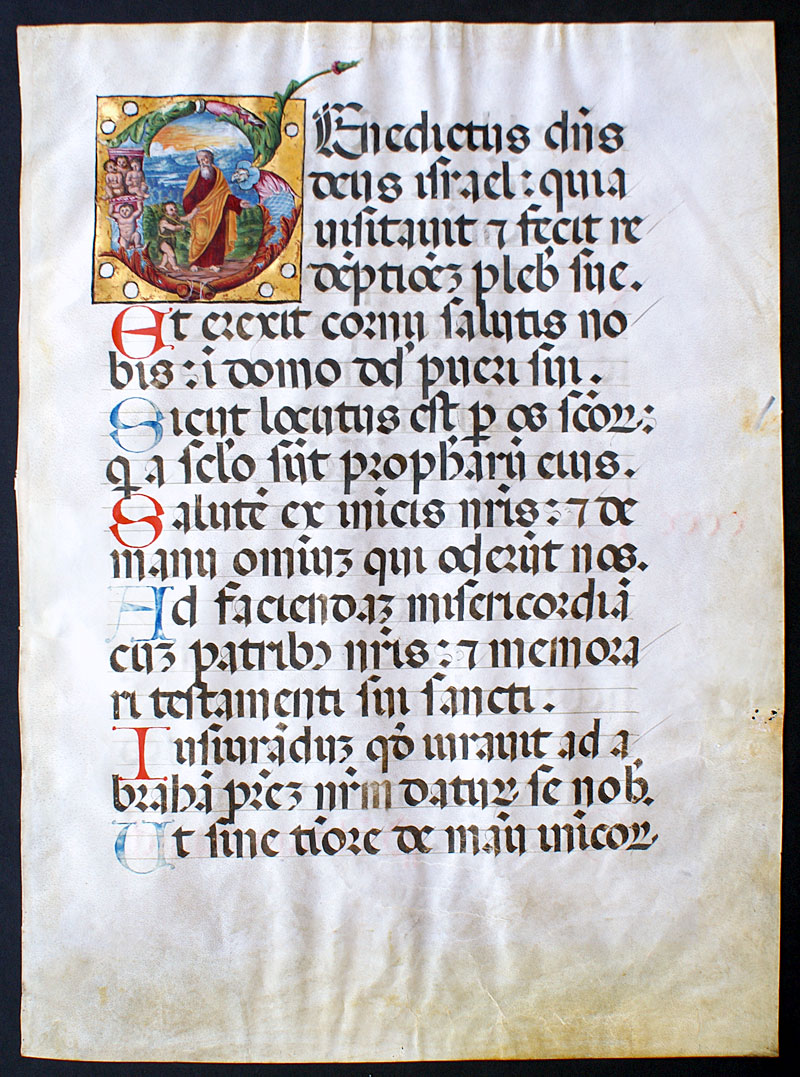 Benedictus dn̄s
deus israel: quia
uisitauit ⁊ fecit re
dēptiōeʒ pleb̄ sue.
Et erexit cornu salutis no
bis: ī domo dd̓ pueri sui.
Sicut locutus est ꝑ os sc̄oꝝ:
q̄ a sc̄lo sūt prophaꝝ eius.
Salutē ex inīcis nr̄is: ⁊ de
manu omīuʒ qui oderūt nos.
Ad faciendaʒ misericordiā
cuʒ patribꝰ nr̄is: ⁊ memora
ri testamenti sui sancti.
Iusiurāduʒ qď iurauit ad a
brahā pr̄eʒ nr̄m daturꝝ se nob̄.
Ut sine tīore de manū inīcoꝝ